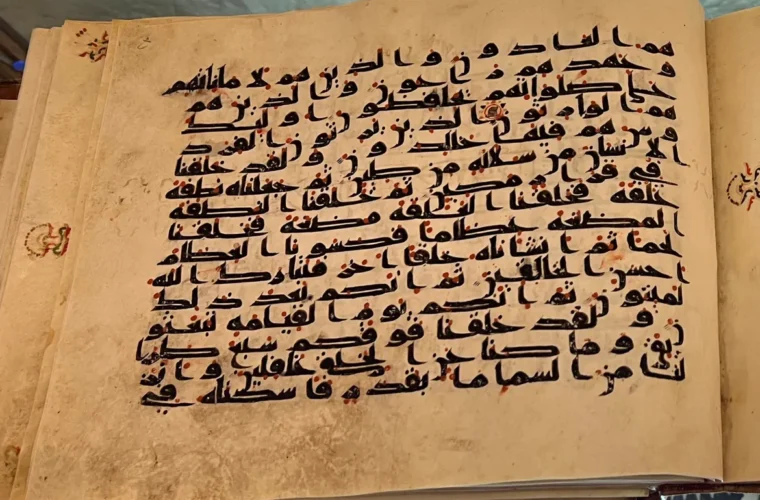 هم العادون والذين هم لاماناتهم
وعهدهم راعون والذين هم
على صلواتهم يحافظون اوليك
هم الوارثون الذين يرثون الفرد
وس هم فيها خالدون ولقد خلقنا
الانسان من سلاله من طين ثم جعلناه نطفه
في قرار مكين ثم خلقنا النطفه
علقه فخلقنا العلقه مضغه فخلقنا
المضغه عظاما فكسونا العظام
لحما ثم انشاناه خلقا اخر فتبارك الله
احسن الخالقين ثم انكم بعد ذلك
لميتون ثم انكم يوم القيامه تبعثو
ن ولقد خلقنا فوقكم سبع طرا
يق وما كنا عن الخلق غافلين وانز
لنا من السما ما بقدر فاسكناه في